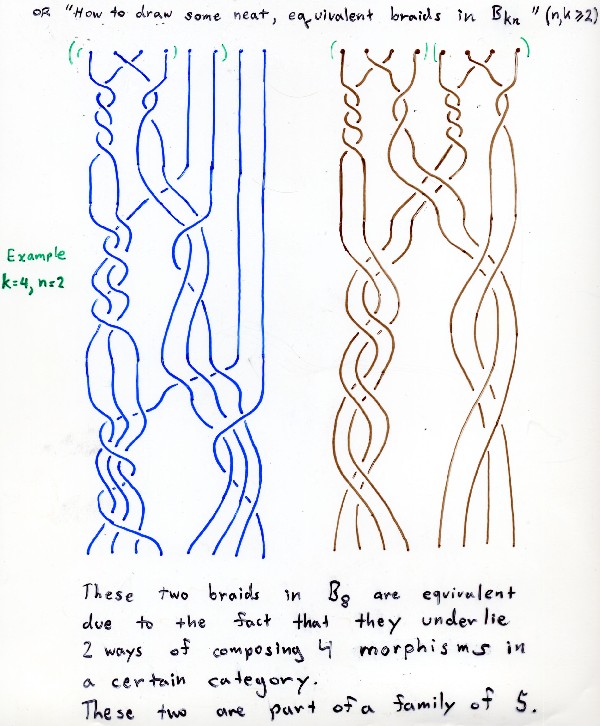 OR "How to draw some neat, equivalent braids in Bkn" (n,k ≥ 2)
( ) ( ) ( )
Example
k=4, n=2
These two braids in B8 are equivalent
due to the fact that they underlie
2 ways of composing 4 morphisms in
a certain category.
These two are part of a family of 5.